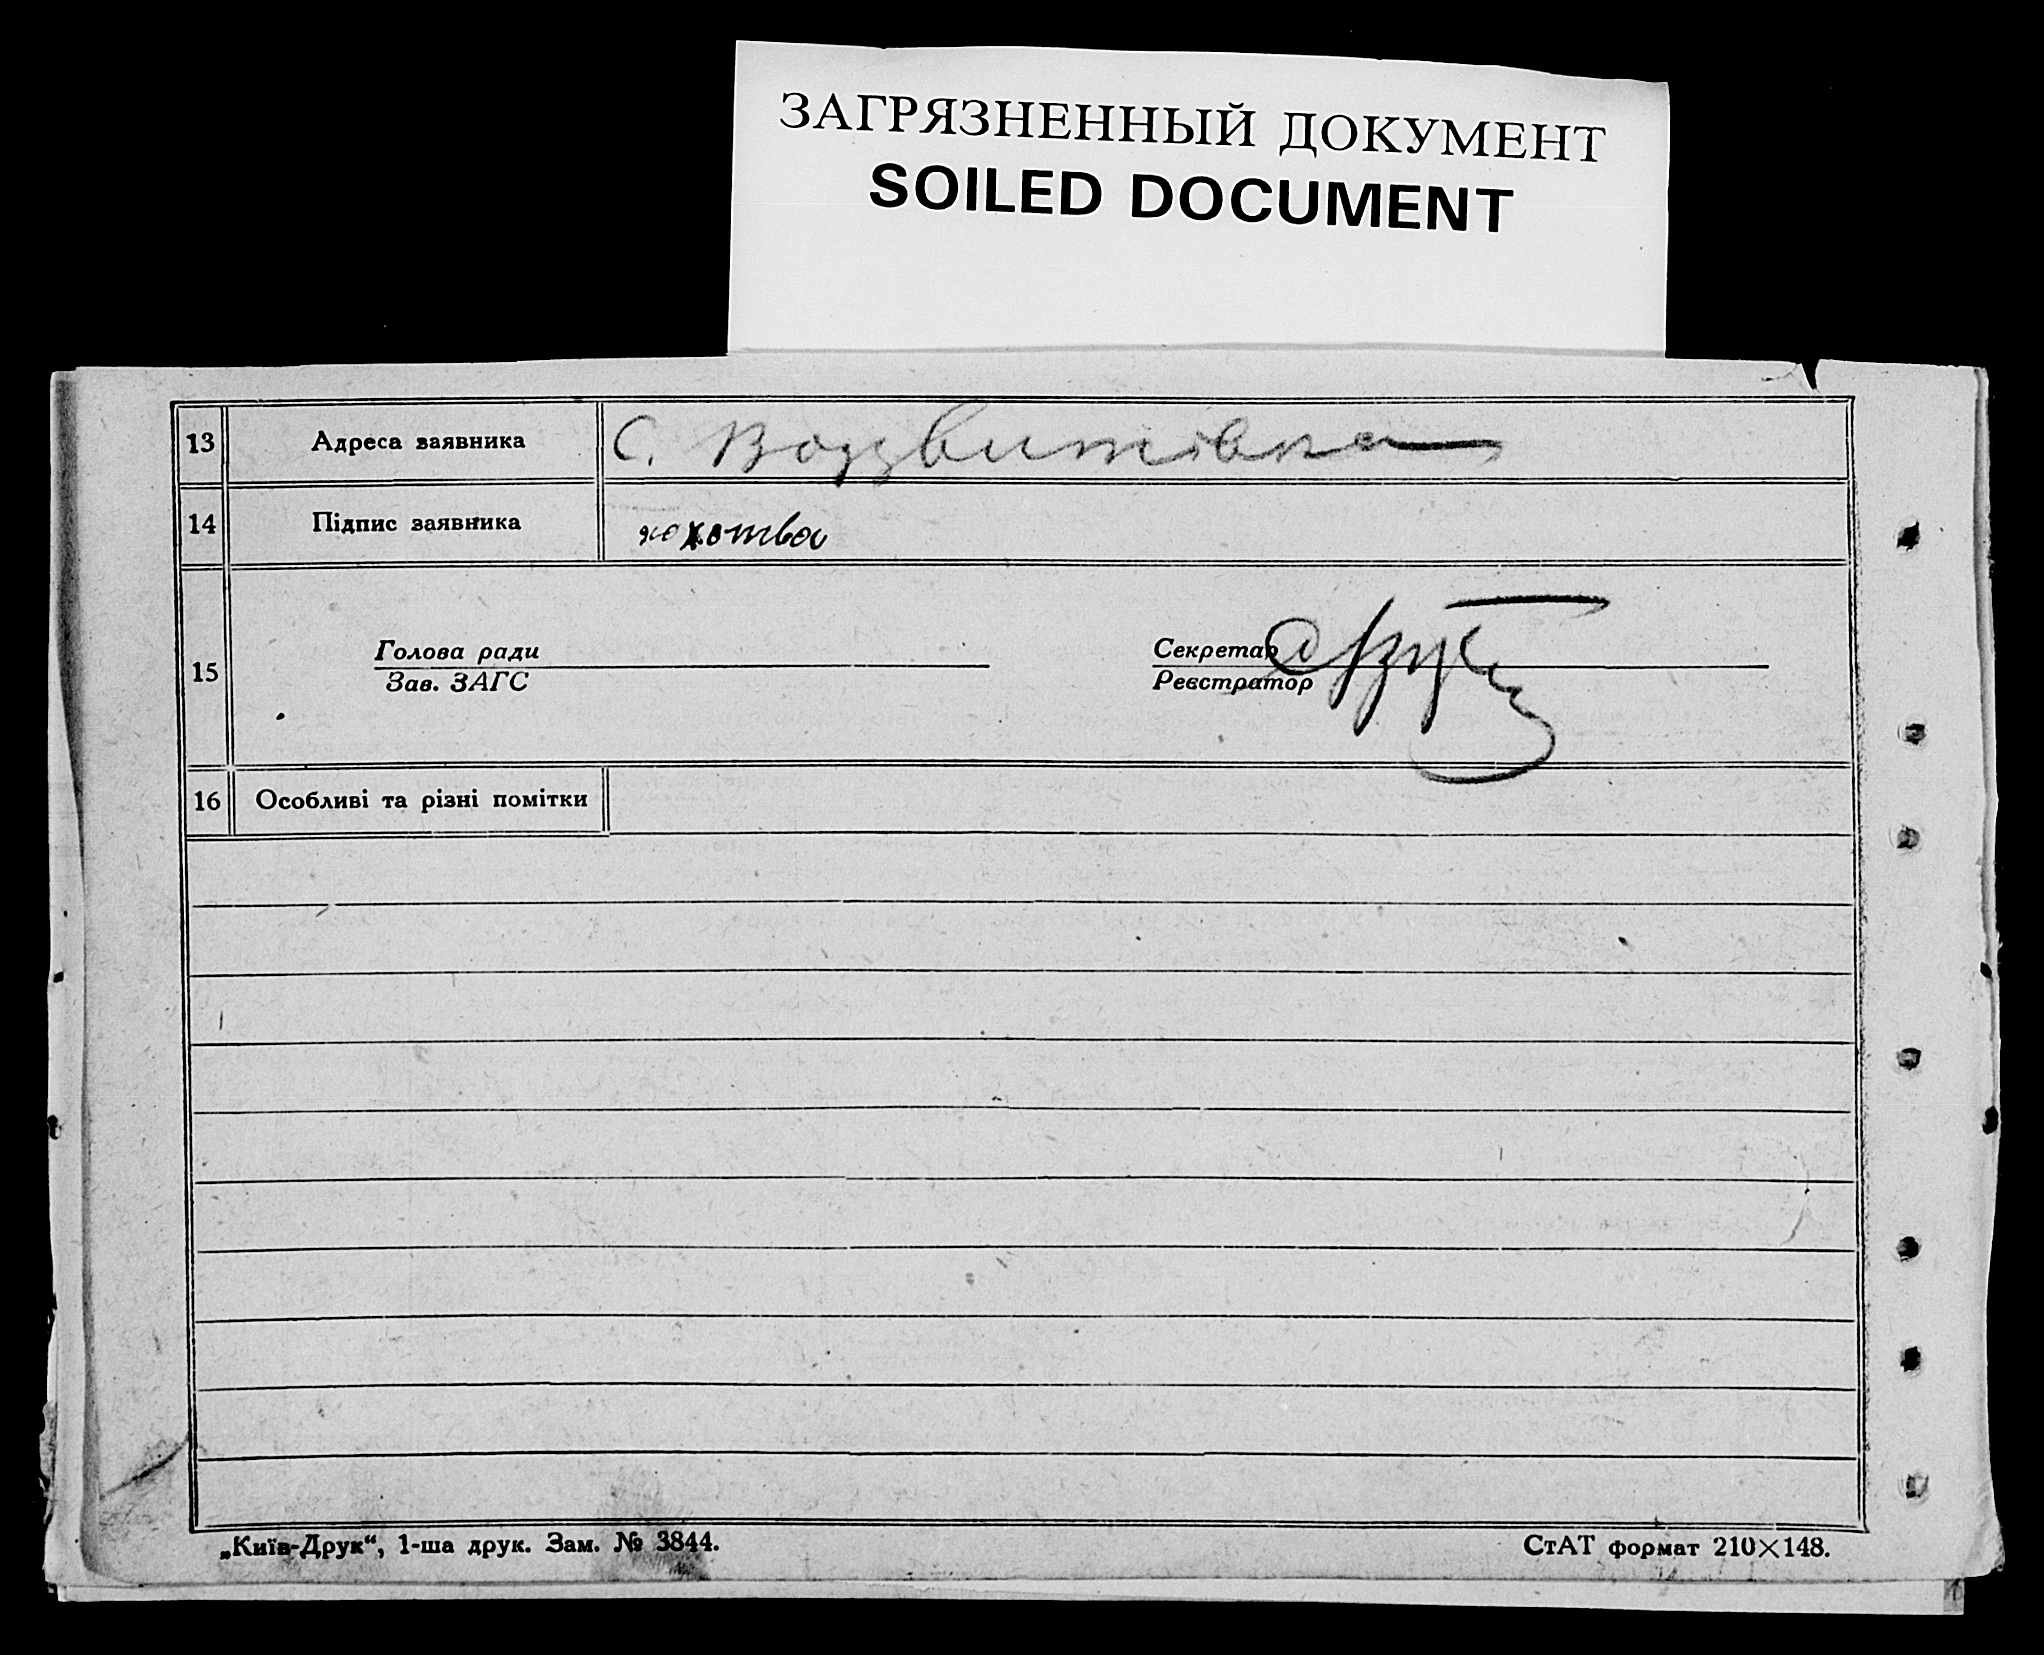 ЗАГРЯЗНЕННЫЙ ДОКУМЕНТ
SOILED DOCUMENT
13 Адреса заявника С. Воздвитівка
14 Підпис заявника
Голова ради Секретар
15
Зав. ЗАГС Реєстратор
16 Особливі та різні помітки
„Київ-Друк“, 1-ша друк. Зам. № 3844. СтАТ формат 210×148.